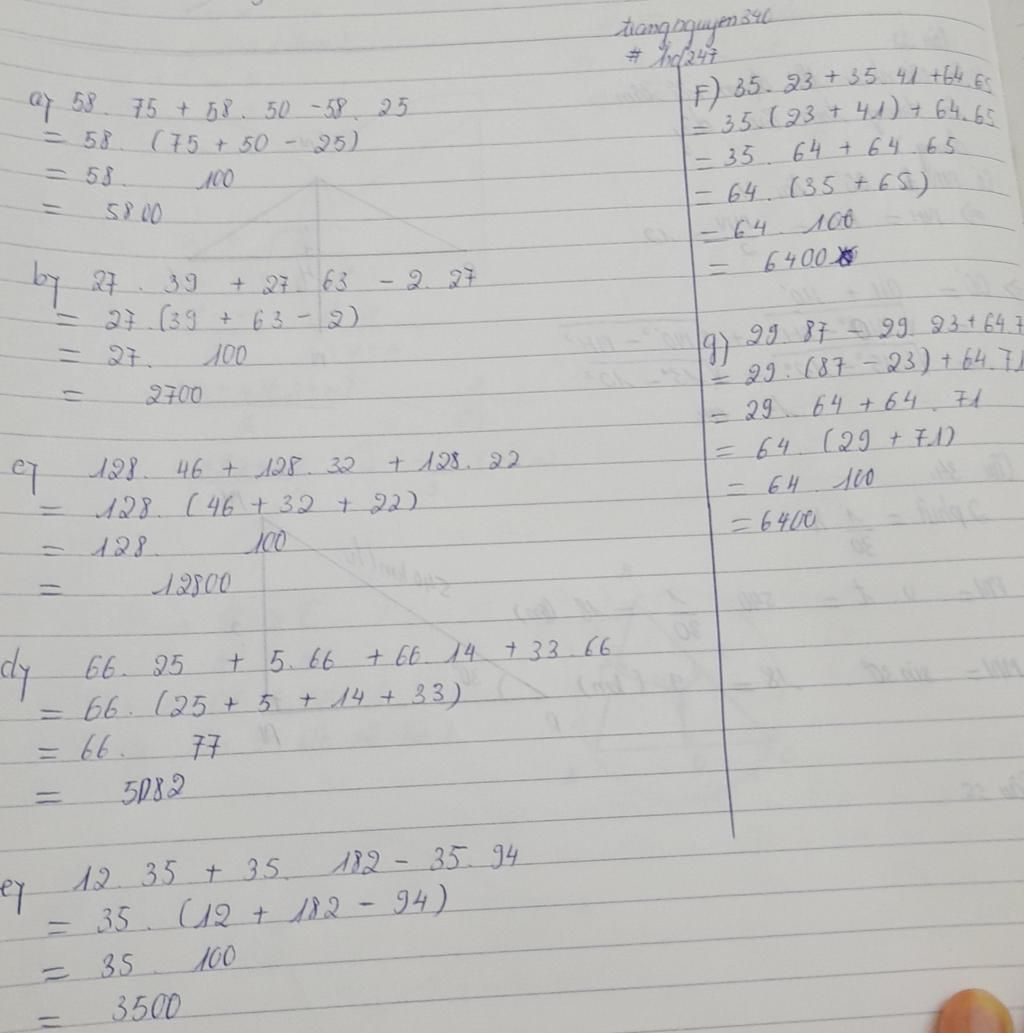 trangnguyen346
# hd247
a) 58. 75 + 58. 50 - 58. 25
= 58. (75 + 50 - 25)
= 58. 100
= 5800
b) 27. 39 + 27. 63 - 2. 27
= 27.(39 + 63 - 2)
= 27. 100
= 2700
c) 128. 46 + 128. 32 + 128. 22
= 128. (46 + 32 + 22)
= 128. 100
= 12800
d) 66. 25 + 5. 66 + 66. 14 + 33. 66
= 66. (25 + 5 + 14 + 33)
= 66. 77
= 5082
e) 12. 35 + 35. 182 - 35. 94
= 35. (12 + 182 - 94)
= 35. 100
= 3500
F) 35. 23 + 35. 41 + 64. 65
= 35.(23 + 41) + 64.65
= 35. 64 + 64 65
= 64. (35 + 65)
= 64. 100
= 6400
g) 29. 87 - 29. 23 + 64.7
= 29. (87 - 23) + 64.71
= 29. 64 + 64. 71
= 64. (29 + 71)
= 64. 100
= 6400